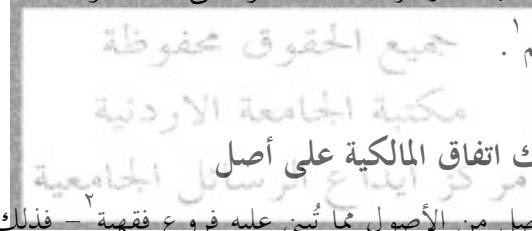 م¹.
جميع الحقوق محفوظة
مكتبة الجامعة الاردنية
ك اتفاق المالكية على أصل
مركز ايداع الرسائل الجامعية
صل من الأصول مما تُبنى عليه فروع فقهية² – فذلك